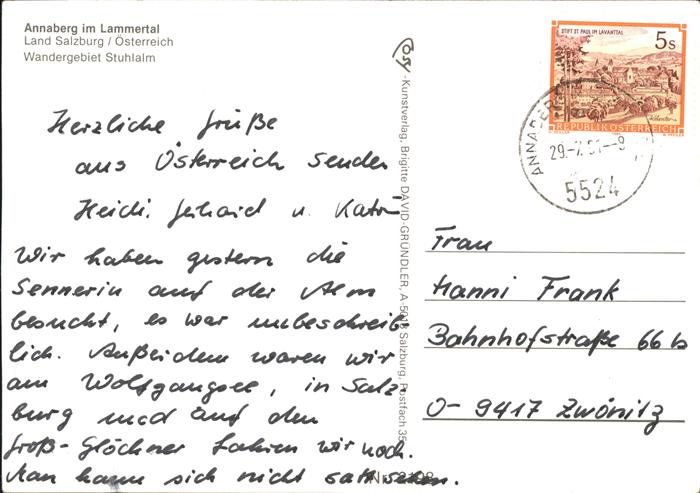 Annaberg im Lammertal
Land Salzburg / Österreich
Wandergebiet Stuhlalm
Herzliche Grüße
aus Österreich senden
Heidi, Gerhard u. Katrin
Wir haben gestern die
Sennerin auf der Alm
besucht, es war unbeschreib-
lich. Außerdem waren wir
am Wolfgangsee, in Salz-
burg und auf den
Groß-Glöckner fahren wir noch.
Man kann sich nicht satt sehen.
-Kunstverlag, Brigitte DAVID-GRÜNDLER, A-5013 Salzburg, Postfach 35
STIFT ST. PAUL IM LAVANTTAL
5s
REPUBLIK ÖSTERREICH
ANNABERG
29.-7.91--8
5524
Frau
Hanni Frank
Bahnhofstraße 66 b
O- 9417 Zwönitz